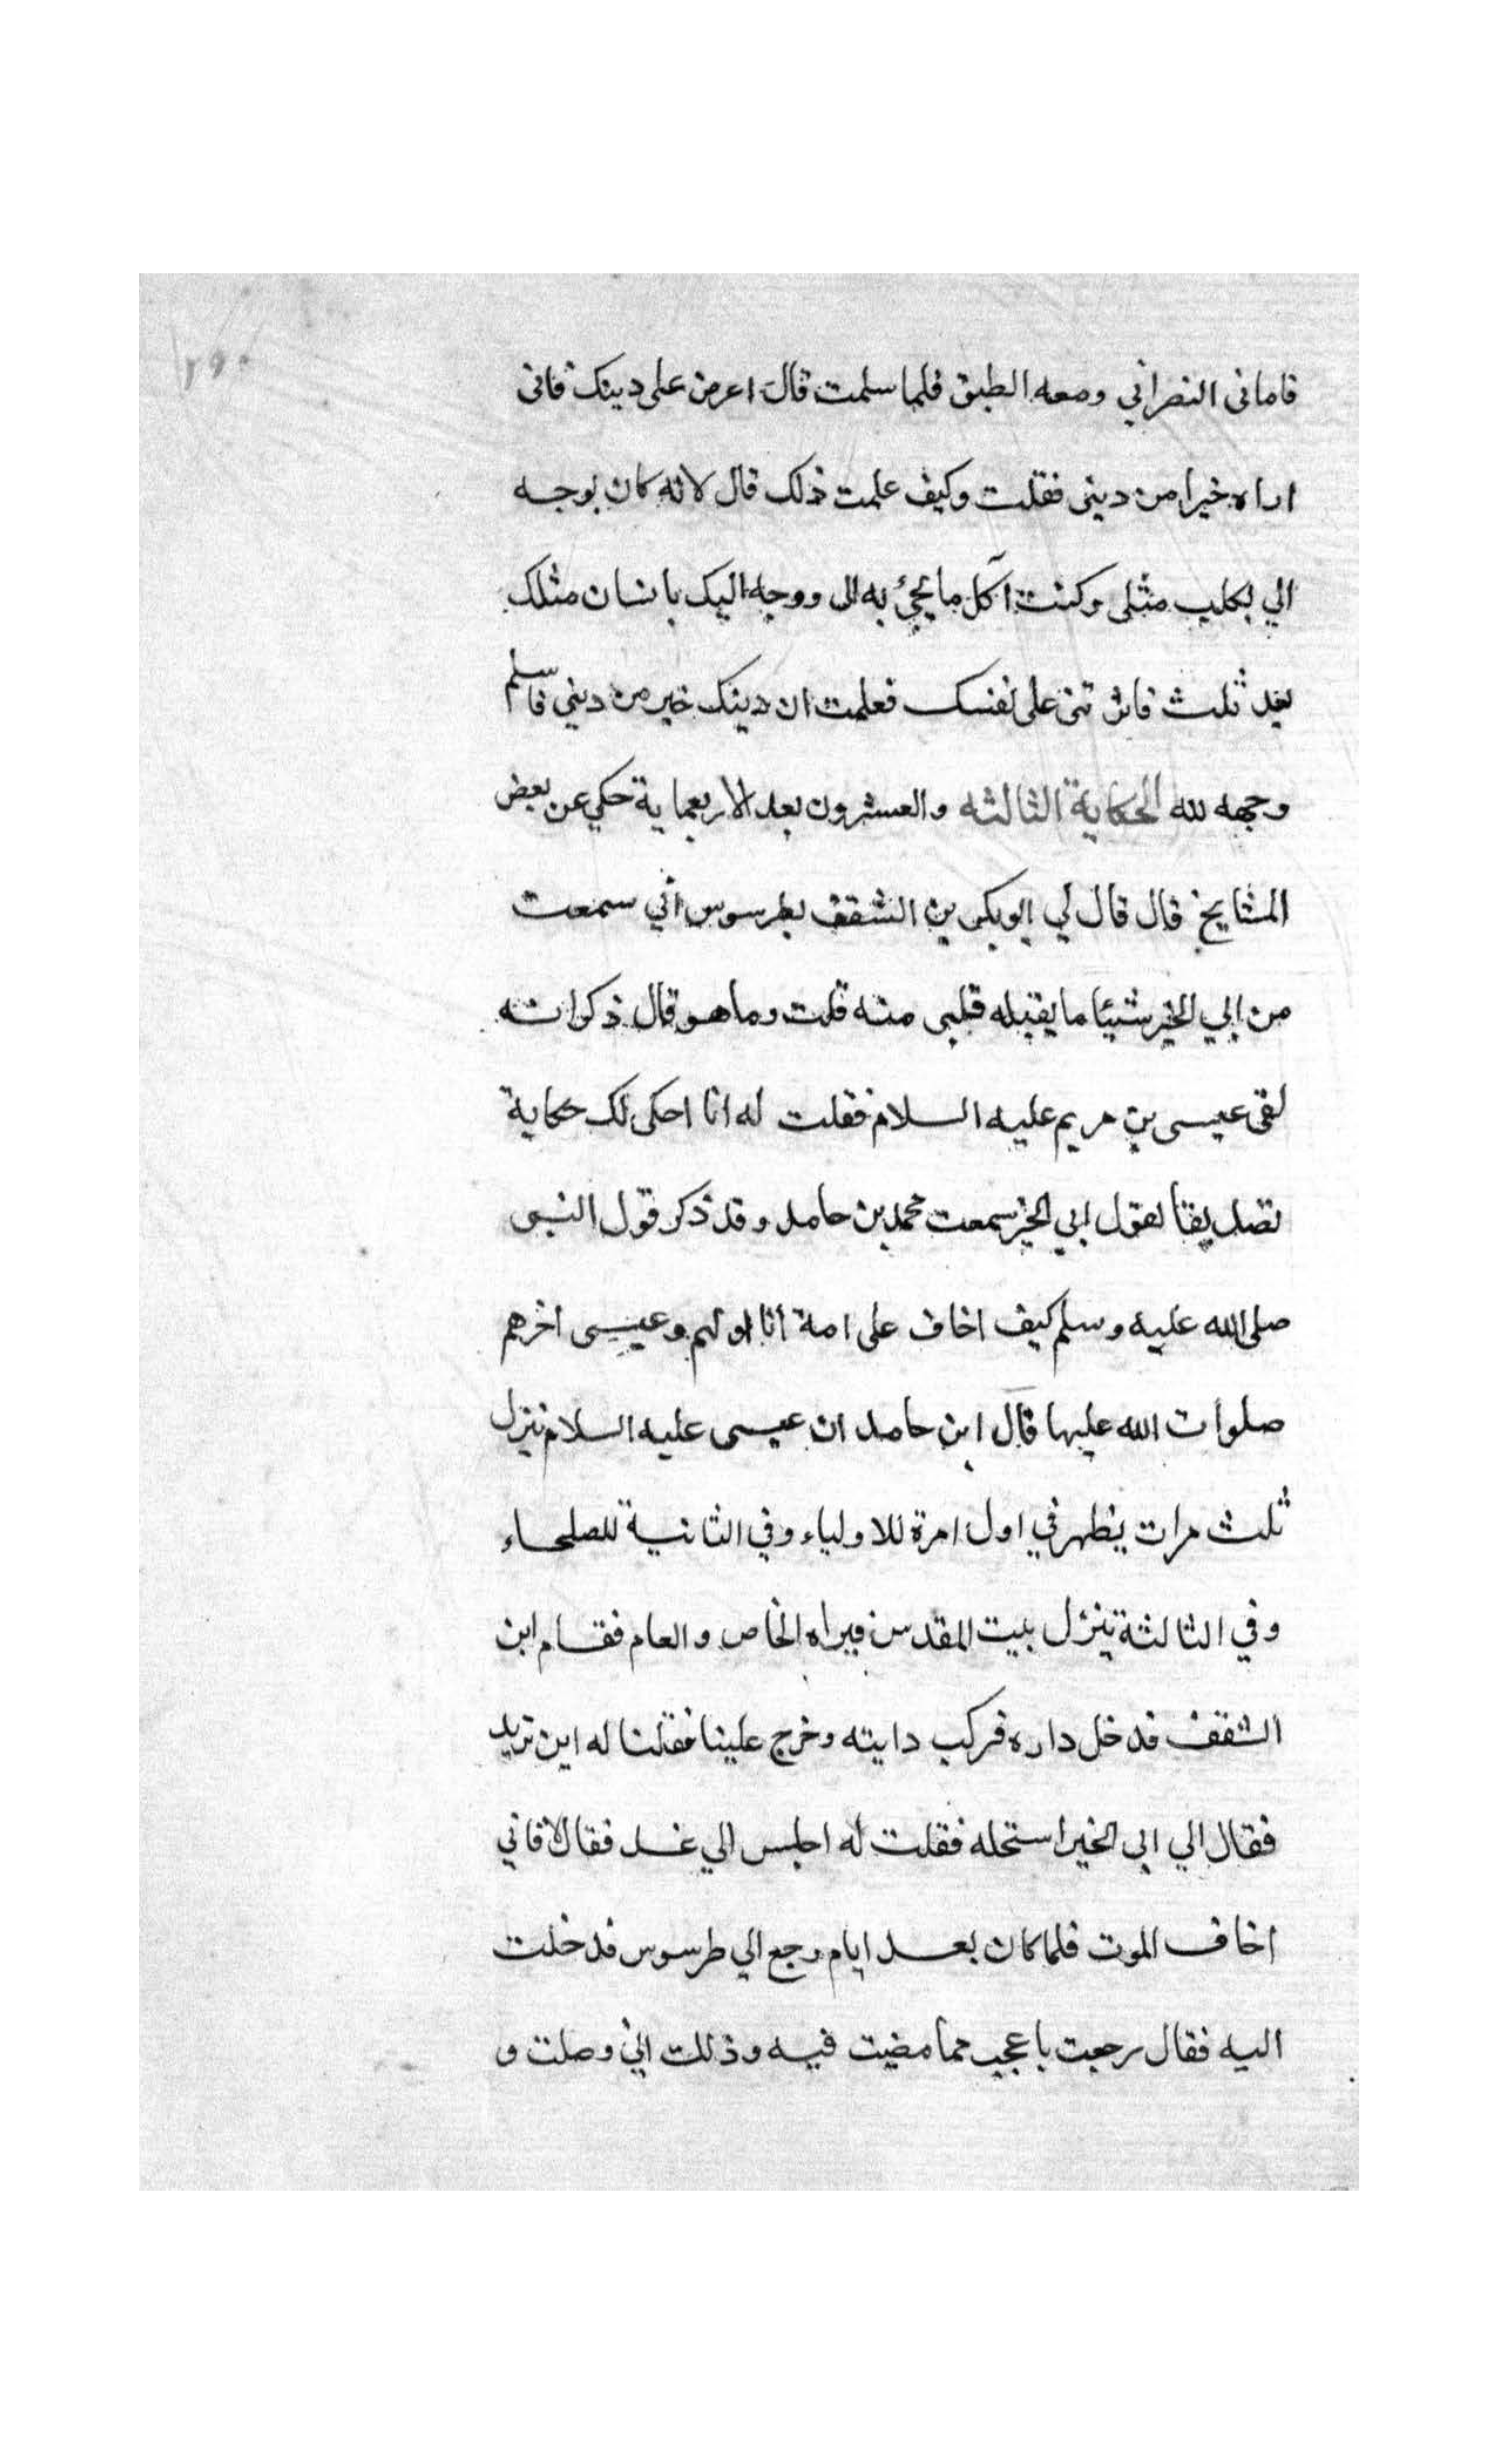 ٢٩٠
فاماني النصراني ومعه الطبق فلما سلمت قال اعرض على دينك فانى
اراه خيرا من دينى فقلت وكيف علمت ذلك قال لانه كان يوجه
الي بكلب مثلى وكنت آكل ما يجئ به الى ووجه اليك بانسان مثلك
بعد ثلث فاثرتنى على نفسك فعلمت ان دينك خير من ديني فاسلم
وجهه لله الحكاية الثالثه والعشرون بعد الاربعماية حكي عن بعض
المشايخ قال قال لي ابو بكر بن الشفف بطرسوس أني سمعت
من ابي الخير شيئا ما يقبله قلبى منه قلت وما هو قال ذكر انه
لقى عيسى بن مريم عليه السلام فقلت له انا احكى لك حكاية
تصديقا لقول ابي الخير سمعت محمد بن حامد وقد ذكر قول النبى
صلى الله عليه وسلم كيف اخاف على امة أنا اولهم وعيسى اخرهم
صلوات الله عليهما قال ابن حامد ان عيسى عليه السلام ينزل
ثلث مرات يظهر في اول امرة للاولياء وفي الثانية للصلحاء
وفي الثالثة ينزل ببيت المقدس فيراه الخاص والعام فقام ابن
الشفف فدخل داره فركب دابته وخرج علينا فقلنا له اين تريد
فقال الي ابى الخير استحله فقلت له اجلس الي غد فقال لا فاني
اخاف الموت فلما كان بعد ايام رجع الي طرسوس فدخلت
اليه فقال رجعت باعجب مما مضيت فيه وذلك اني وصلت و